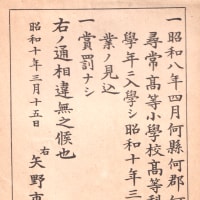 一昭和八年四月何縣何郡何
尋常高等小學校高等科
學年ニ入學シ昭和十年三
業ノ見込
一賞罰ナシ
右ノ通相違無之候也
昭和十年三月十五日
右
矢野市